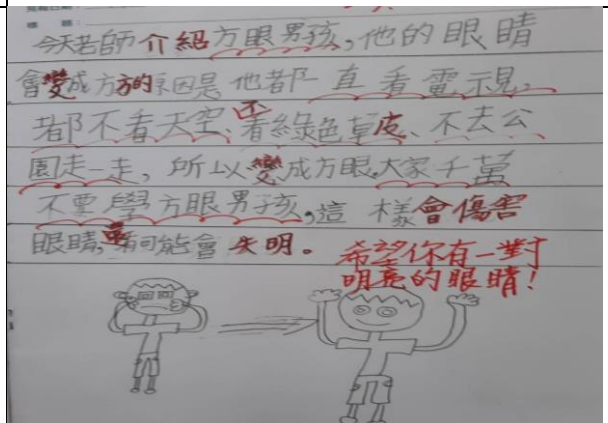 今天老師介紹方眼男孩,他的眼睛
會變成方方的原因是他都一直看電視,
都不看天空、不看綠色草皮、不去公
園走一走,所以變成方眼,大家千萬
不要學方眼男孩,這樣會傷害
眼睛,還可能會失明。
希望你有一對
明亮的眼睛!